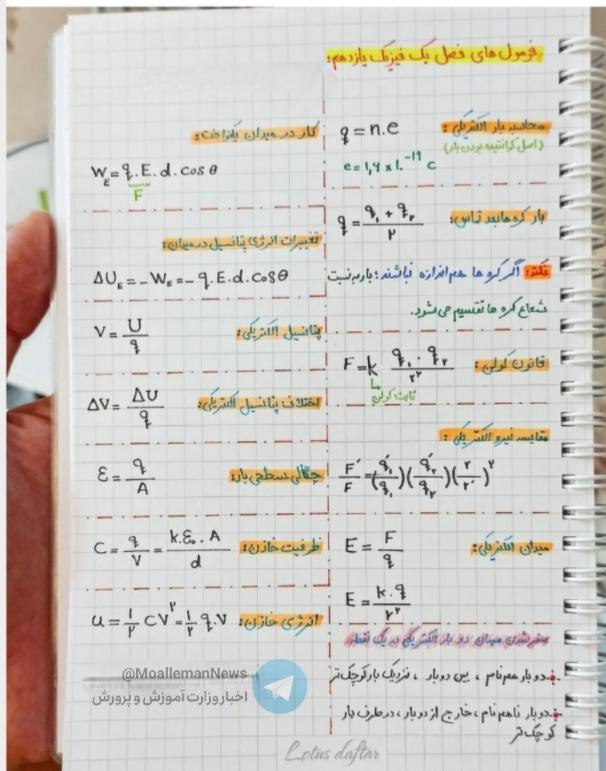 فرمول های فصل یک فیزیک یازدهم:
محاسبه بار الکتریکی:
(اصل کوانتیده بودن بار)
q = n.e
e = ۱,۶ × ۱۰^-۱۹ c
بار کره ها بعد تماس:
q = (q₁ + q₂) / ۲
نکته: اگر کره ها هم اندازه نباشند؛ بار به نسبت
شعاع کره ها تقسیم می شود.
قانون کولن:
F = k (q₁ . q₂) / r²
ثابت کولن
مقایسه نیرو الکتریکی:
F′/F = (q′₁/q₁)(q′₂/q₂)(r/r′)²
میدان الکتریکی:
E = F/q
E = k.q / r²
صفر شدن میدان دو بار الکتریکی در یک نقطه:
دو بار همنام، بین دو بار، نزدیک بار کوچک تر
دو بار ناهم نام، خارج از دو بار، در طرف بار
کوچک تر
کار در میدان یکنواخت:
W_E = q.E.d.cosθ
F
تغییرات انرژی پتانسیل در میدان:
ΔU_E = -W_E = -q.E.d.cosθ
پتانسیل الکتریکی:
V = U/q
اختلاف پتانسیل الکتریکی:
ΔV = ΔU/q
چگالی سطحی بار:
Ɛ = q/A
ظرفیت خازن:
C = q/V = k.Ɛ₀.A / d
انرژی خازن:
u = ۱/۲ CV² = ۱/۲ q.V
@MoallemanNews
اخبار وزارت آموزش و پرورش
Lotus daftar